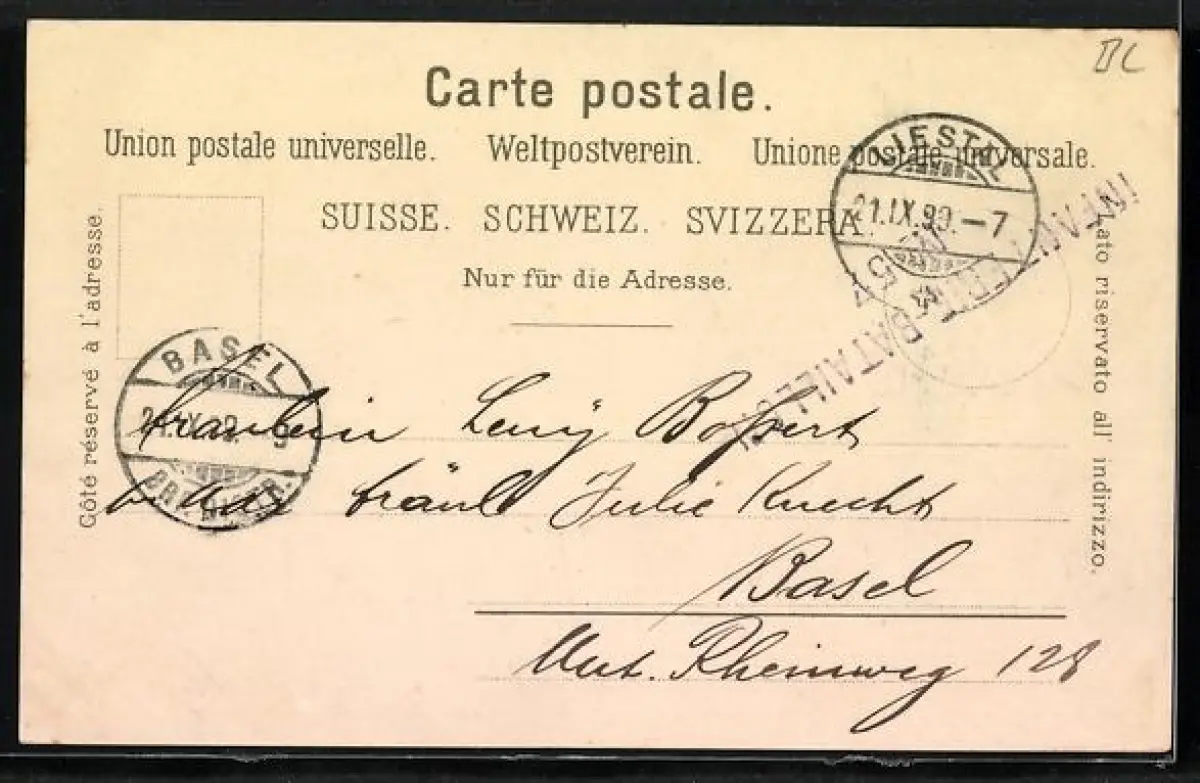 BL
Carte postale.
Union postale universelle. Weltpostverein. Unione postale universale.
SUISSE. SCHWEIZ. SVIZZERA.
Nur für die Adresse.
Côté réservé à l'adresse.
Lato riservato all' indirizzo.
LIESTAL
21.IX.99.-7
INFANTERIE-BATAILLON
BASEL
IX.99
Fräulein Leny Bossert
Fräul Julie Knecht
Basel
Unt. Rheinweg 128